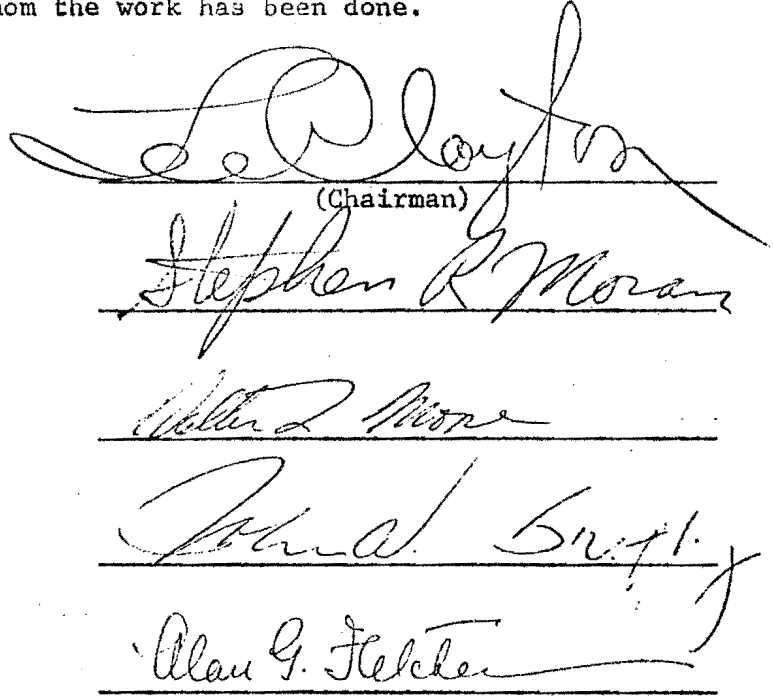 hom the work has been done.
Lee Clayton
(Chairman)
Stephen R Moran
Walter L Moore
John W.
Alan G. Fletcher